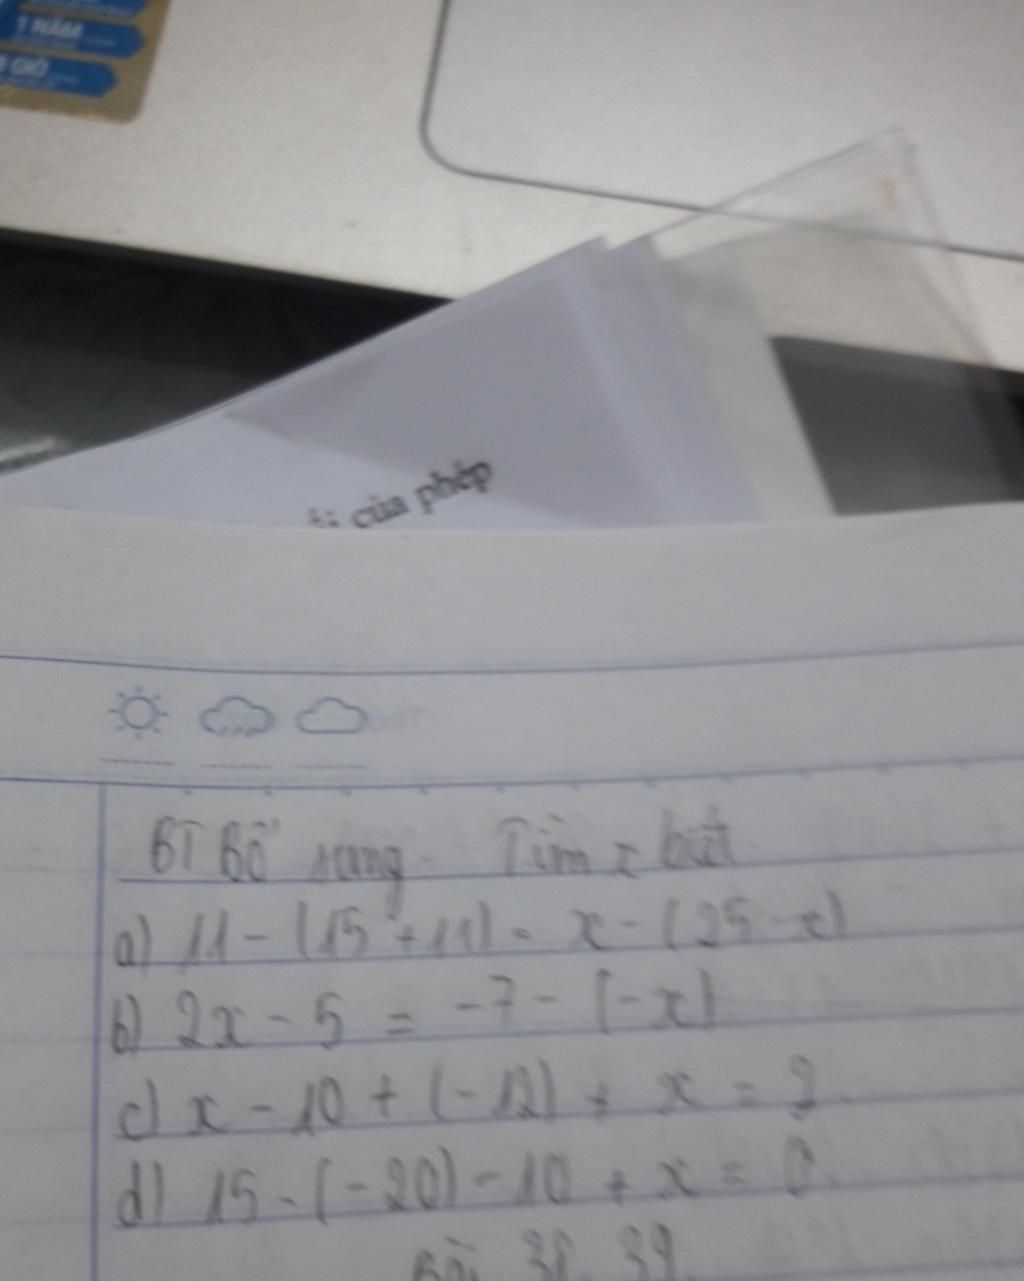 1 NĂM
GIỜ
của phép
BT Bổ sung. Tìm x biết
a) 11 - (15 + 11) = x - (25 - x)
b) 2x - 5 = -7 - (-x)
c) x - 10 + (-12) + x = 2.
d) 15 - (-20) - 10 + x = 0.
Bài 38, 39